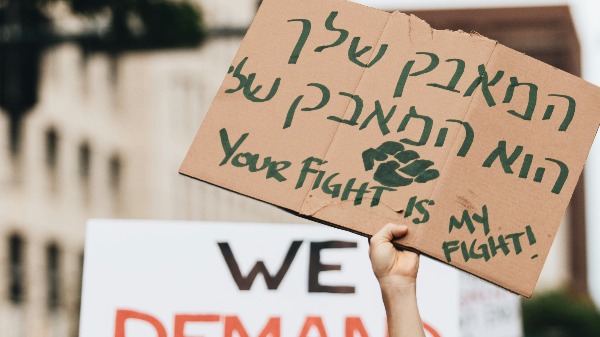 המאבק שלך
הוא המאבק שלי
YOUR FIGHT IS MY
FIGHT!
WE
DEMAND